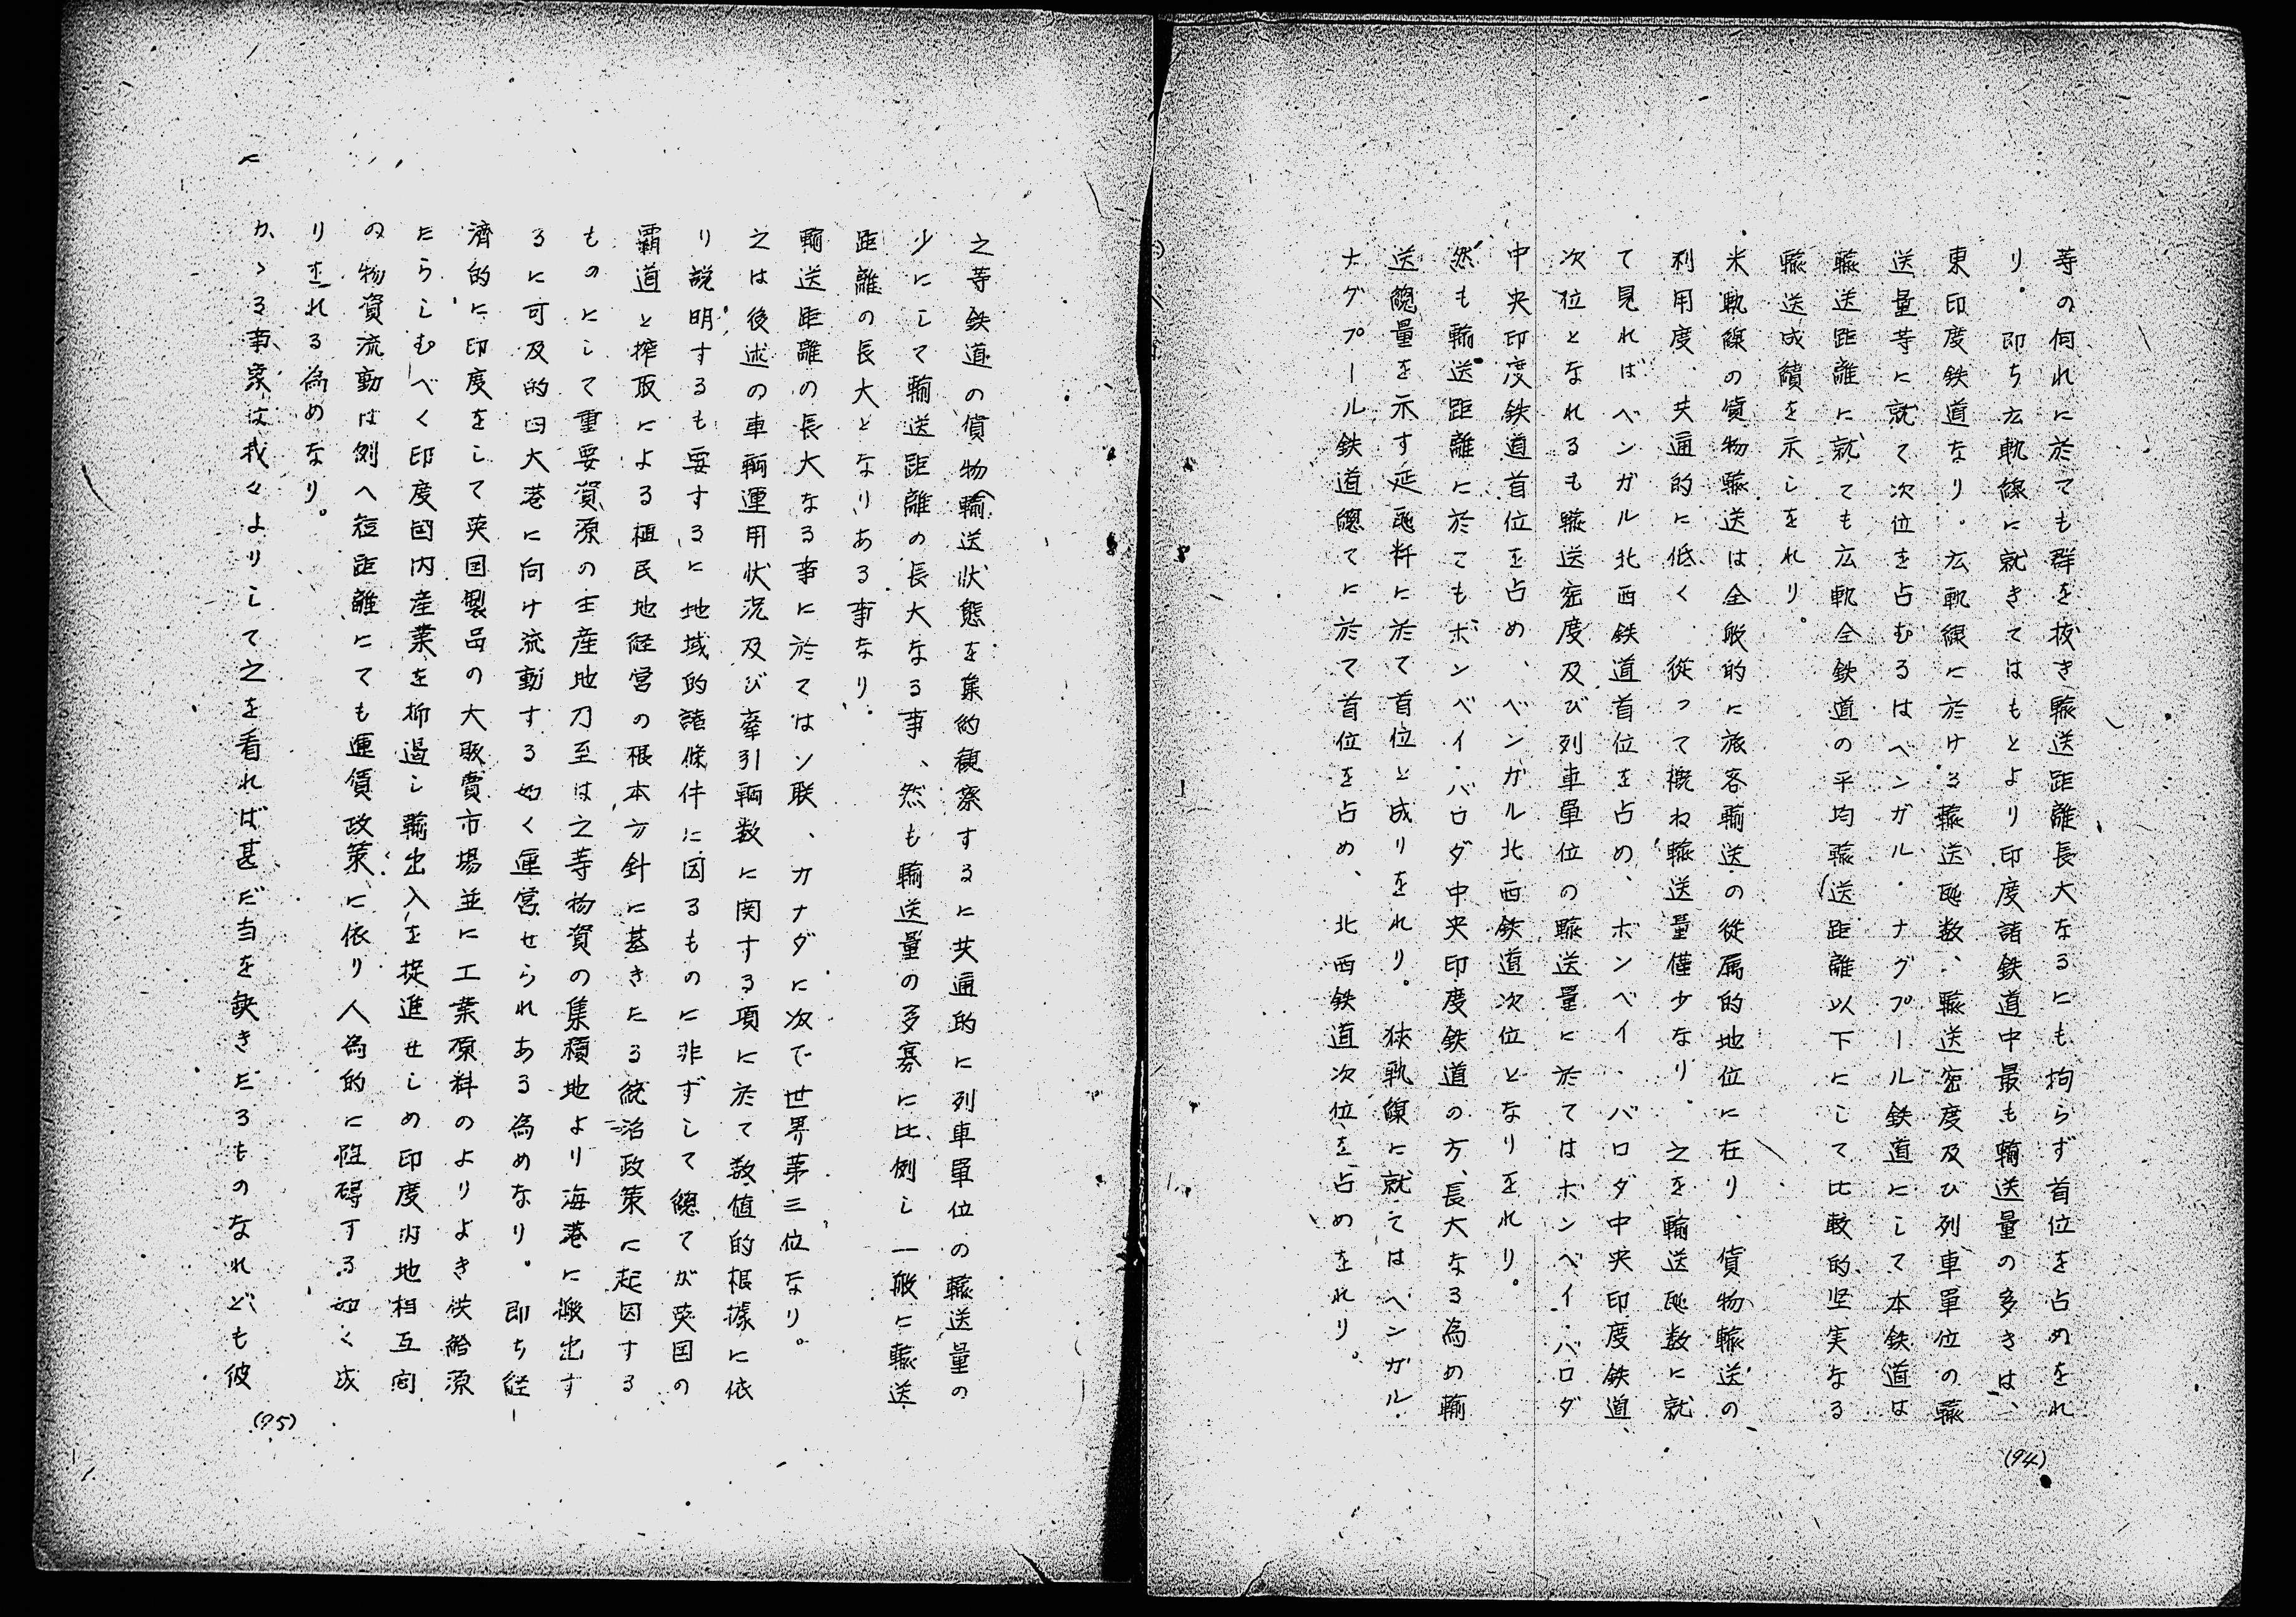 等の何れに於ても群を抜き輸送距離長大なるにも拘らず首位を占めをれ
り。即ち広軌線に就きてはもとより印度諸鉄道中最も輸送量の多きは、
東印度鉄道なり。広軌線に於ける輸送瓲数、輸送密度及び列車単位の輸
送量等に就て次位を占むるはベンガル・ナグプール鉄道にして本鉄道は
輸送距離に就ても広軌全鉄道の平均輸送距離以下にして比較的坚実なる
輸送成績を示しをれり。
米軌線の貨物輸送は全般的に旅客輸送の従属的地位に在り、貨物輸送の
利用度、共通的に低く、従って概ね輸送量僅少なり。之を輸送瓲数に就
て見ればベンガル北西鉄道首位を占め、ボンベイ・バロダ中央印度鉄道
次位となれるも輸送密度及び列車単位の輸送量に於てはボンベイ・バロダ
中央印度鉄道首位を占め、ベンガル北西鉄道次位となりをれり。
然も輸送距離に於てもボンベイ・バロダ中央印度鉄道の方、長大なる為め輸
送總量を示す延瓲粁に於て首位と成りをれり。狭軌線に就てはベンガル・
ナグプール鉄道總てに於て首位を占め、北西鉄道次位を占めをれり。
(94)
之等鉄道の貨物輸送状態を集約観察するに共通的に列車単位の輸送量の
少にして輸送距離の長大なる事、然も輸送量の多寡に比例し一般に輸送
距離の長大となりある事なり。
輸送距離の長大なる事に於てはソ联、カナダに次で世界第三位なり。
之は後述の車輌運用状況及び牽引輌数に関する項に於て数値的根據に依
り説明するも要するに地域的諸條件に因るものに非ずして總てが英国の
覇道と搾取による植民地経営の根本方針に基きたる統治政策に起因する
ものにして重要資源の主産地乃至は之等物資の集積地より海港に搬出す
るに可及的四大港に向け流動する如く運営せられある為めなり。即ち経
済的に印度をして英国製品の大販賣市場並に工業原料のよりよき供給源
たらしむべく印度国内産業を抑過し輸出入を捉進せしめ印度内地相互向
の物資流動は例へ短距離にても運賃政策に依り人為的に阻碍する如く成
り主れる為めなり。
かゝる事象は我々よりして之を看れば甚だ当を缺きたるものなれども彼
に
(95)